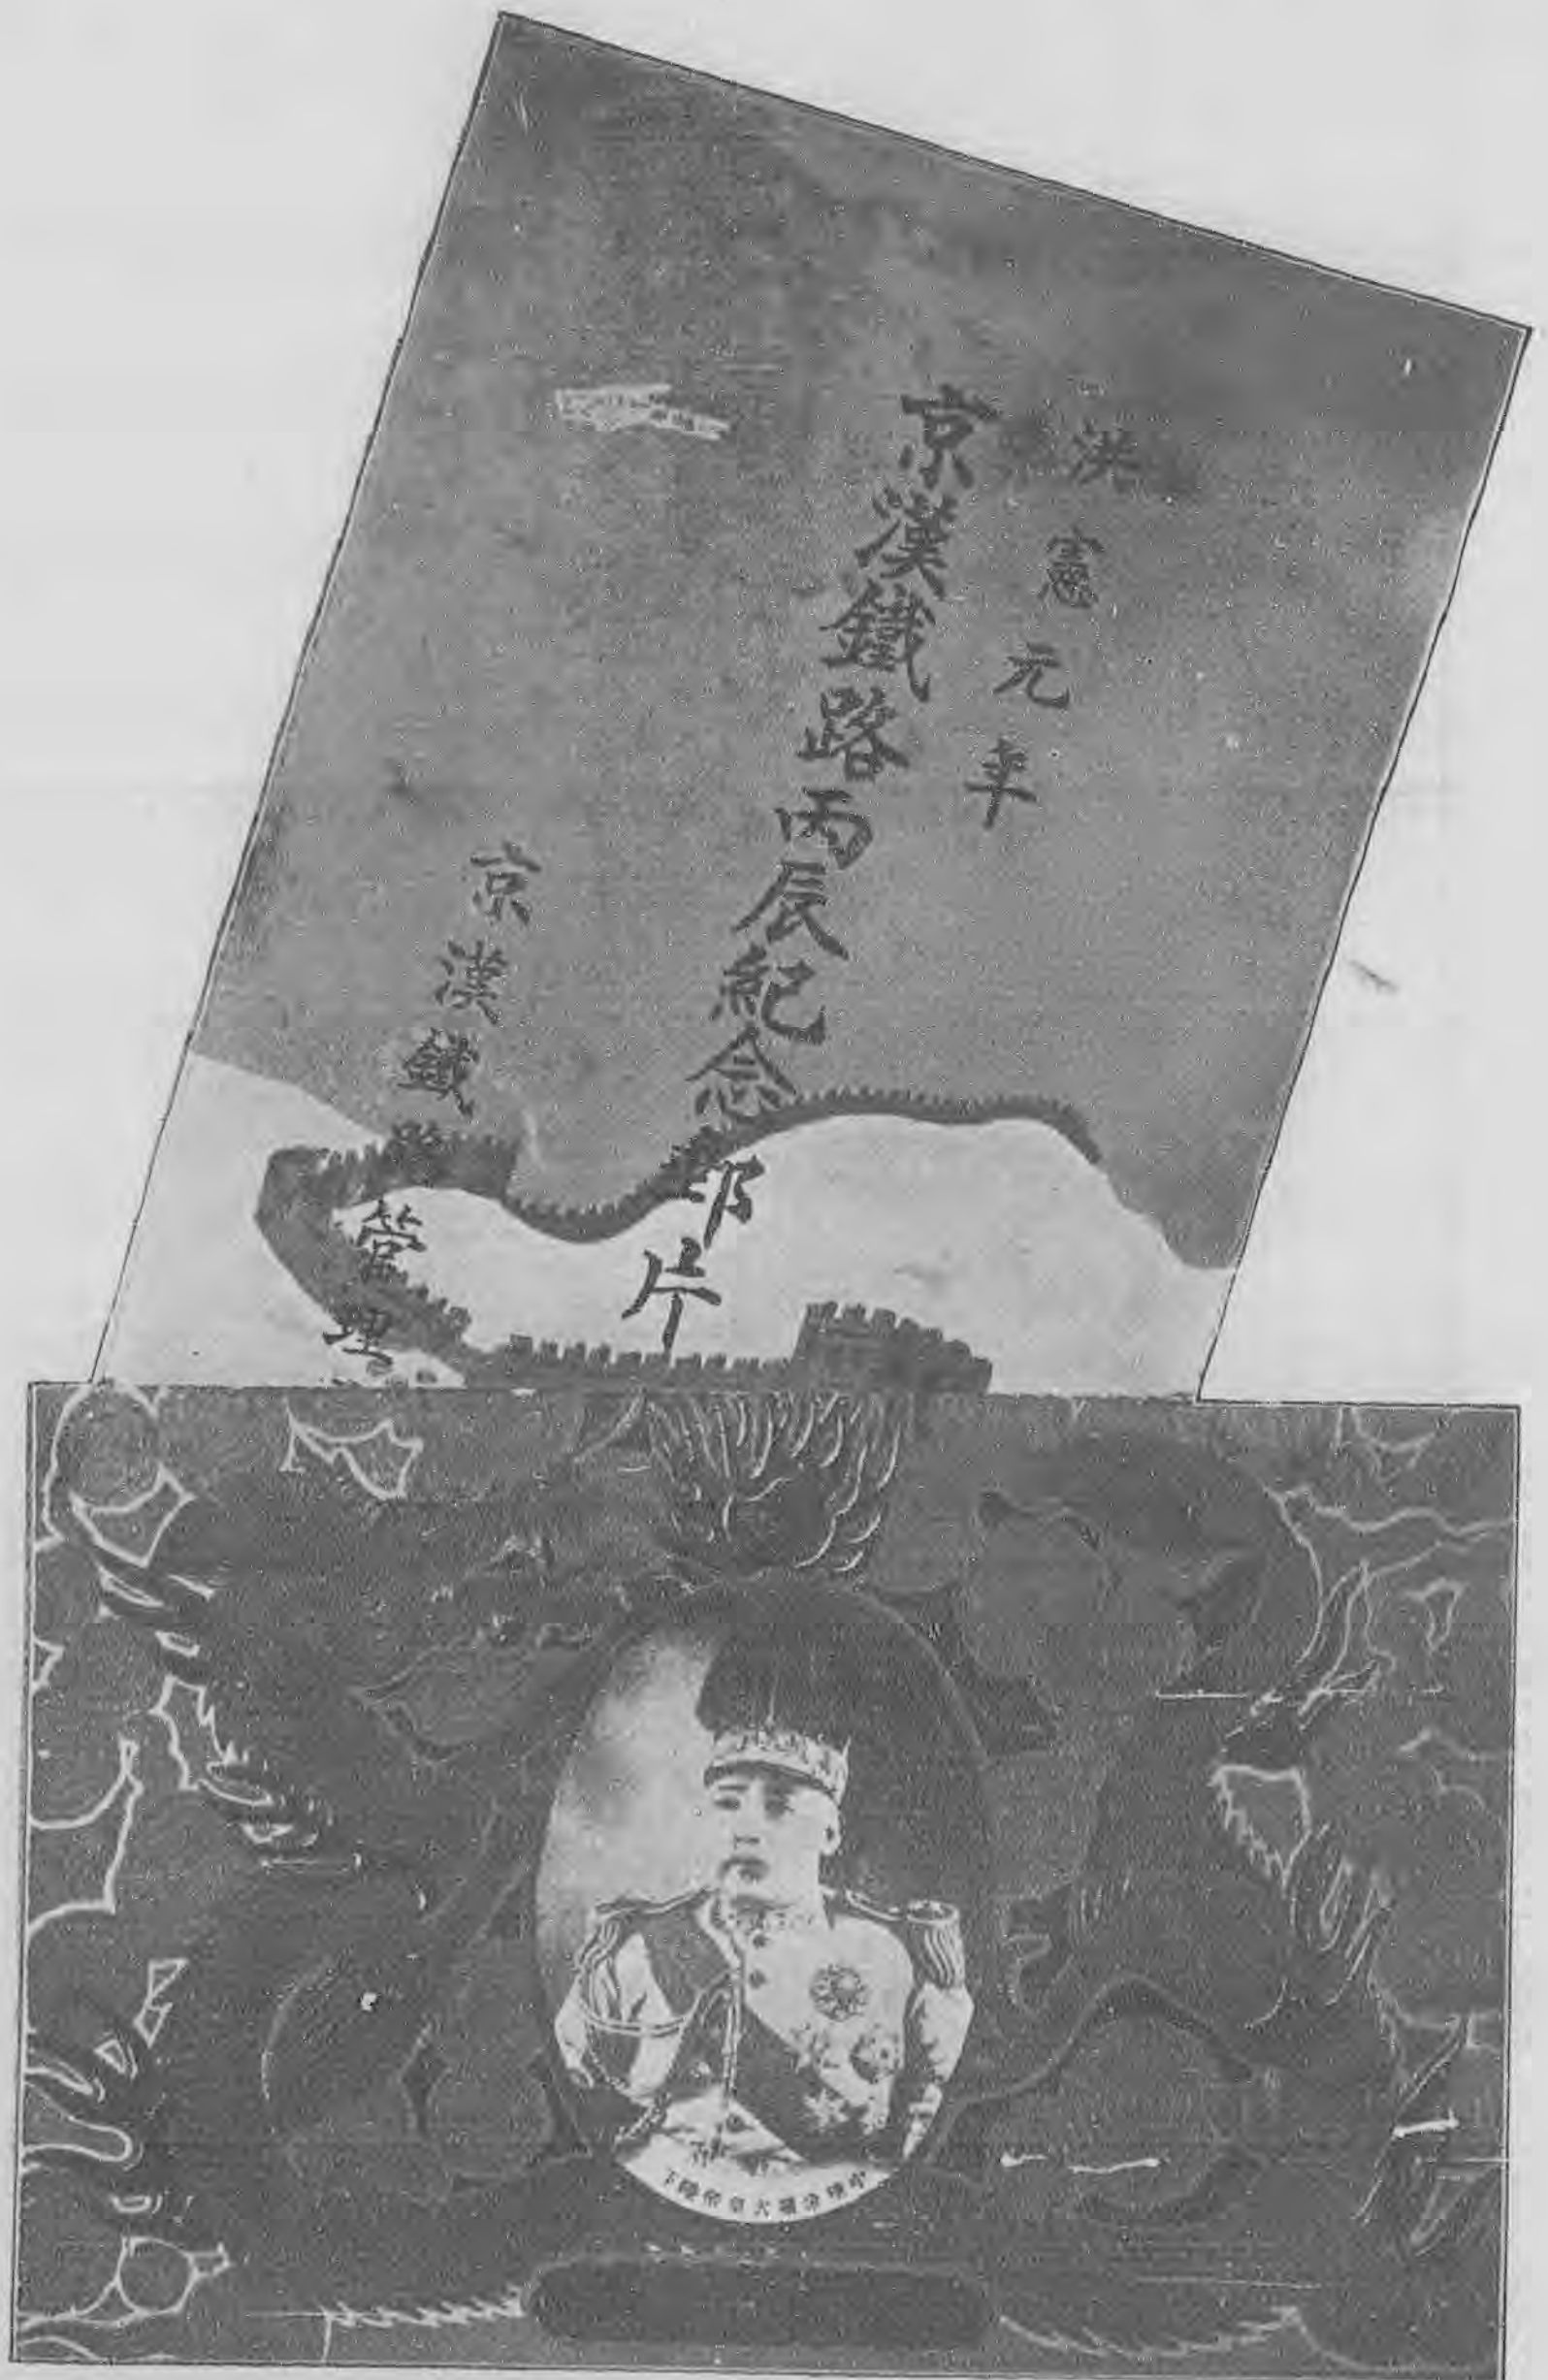 洪憲元年
京漢鐵路丙辰紀念郵片
京漢鐵路管理
中華帝國大皇帝陛下